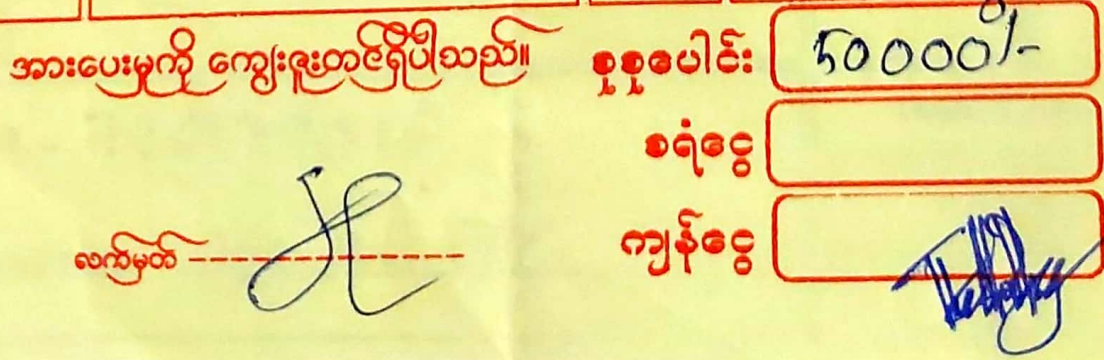 အားပေးမှုကို ကျေးဇူးတင်ရှိပါသည်။
စုစုပေါင်း 50000/-
စရံငွေ
ကျန်ငွေ
လက်မှတ်